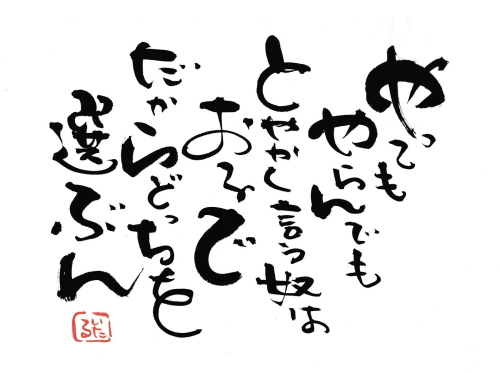 やっても
やらんでも
とやかく言う奴は
おるで
だからどっちを
選ぶん